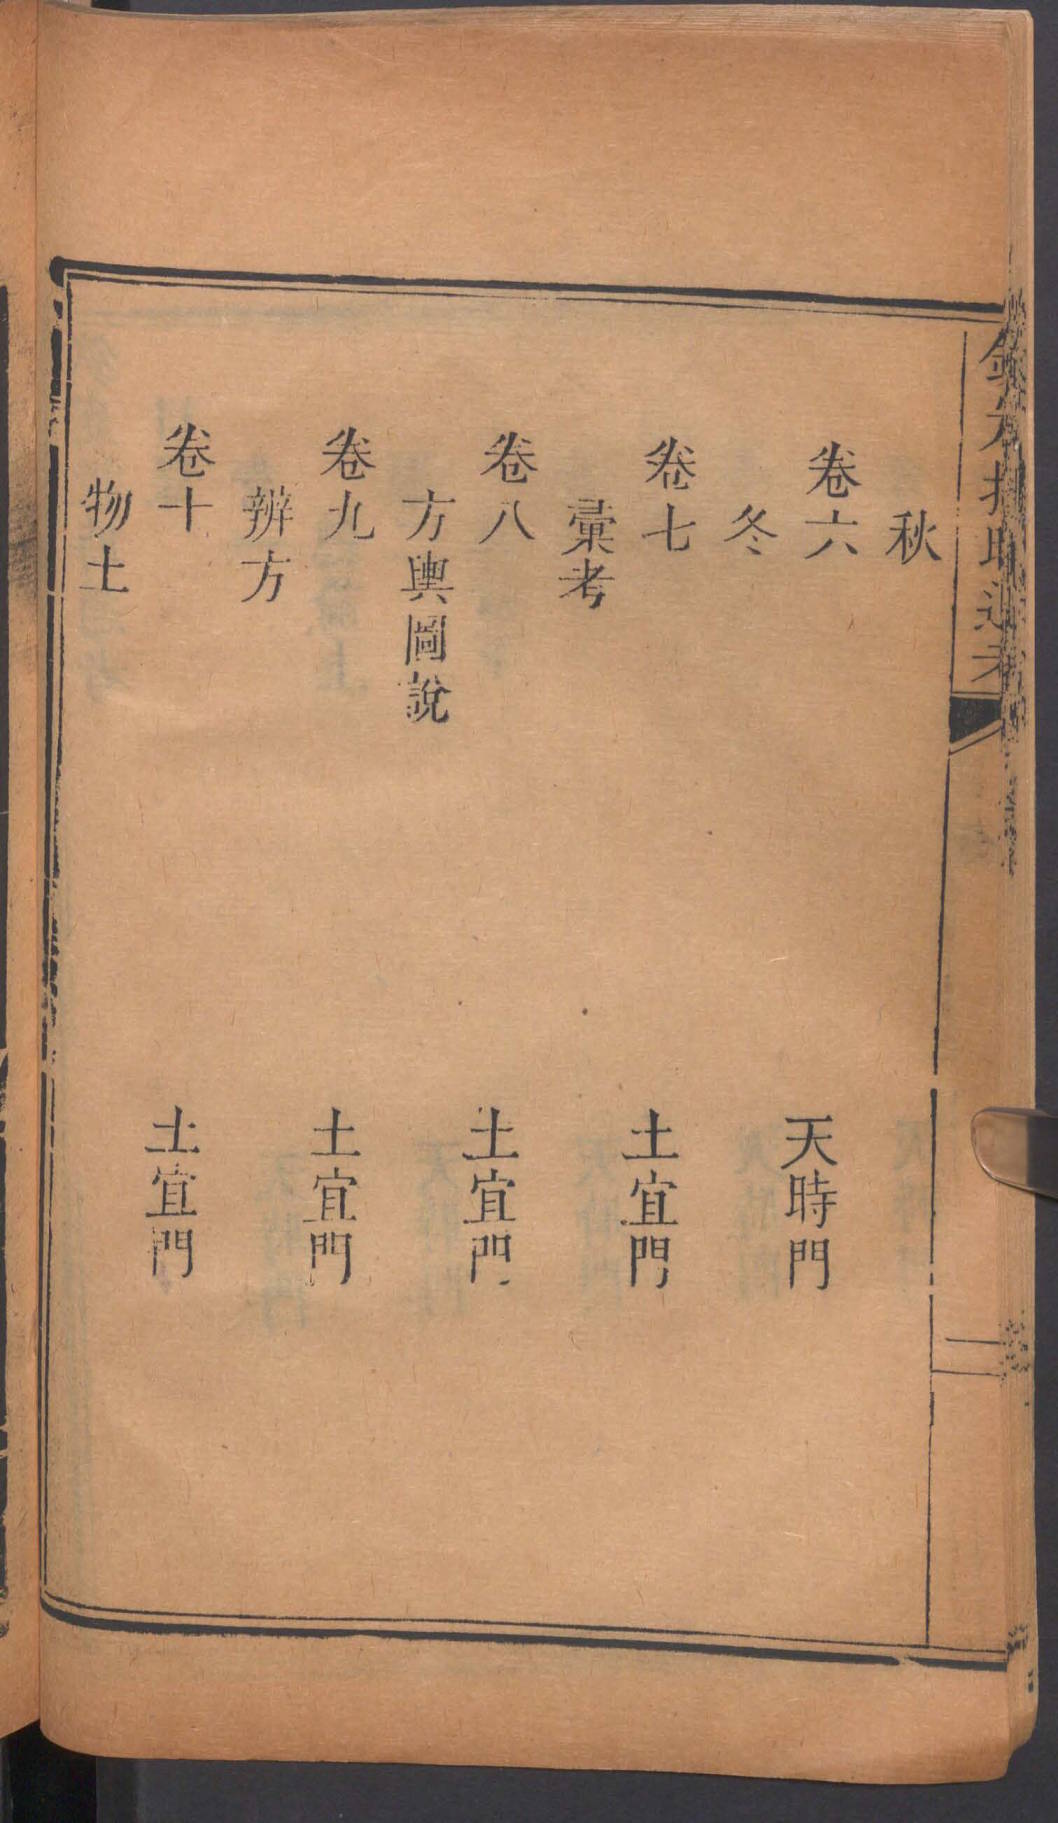 欽定授時通考
秋
卷六 天時門
冬
卷七 土宜門
彙考
卷八 土宜門
方輿圖說
卷九 土宜門
辨方
卷十 土宜門
物土